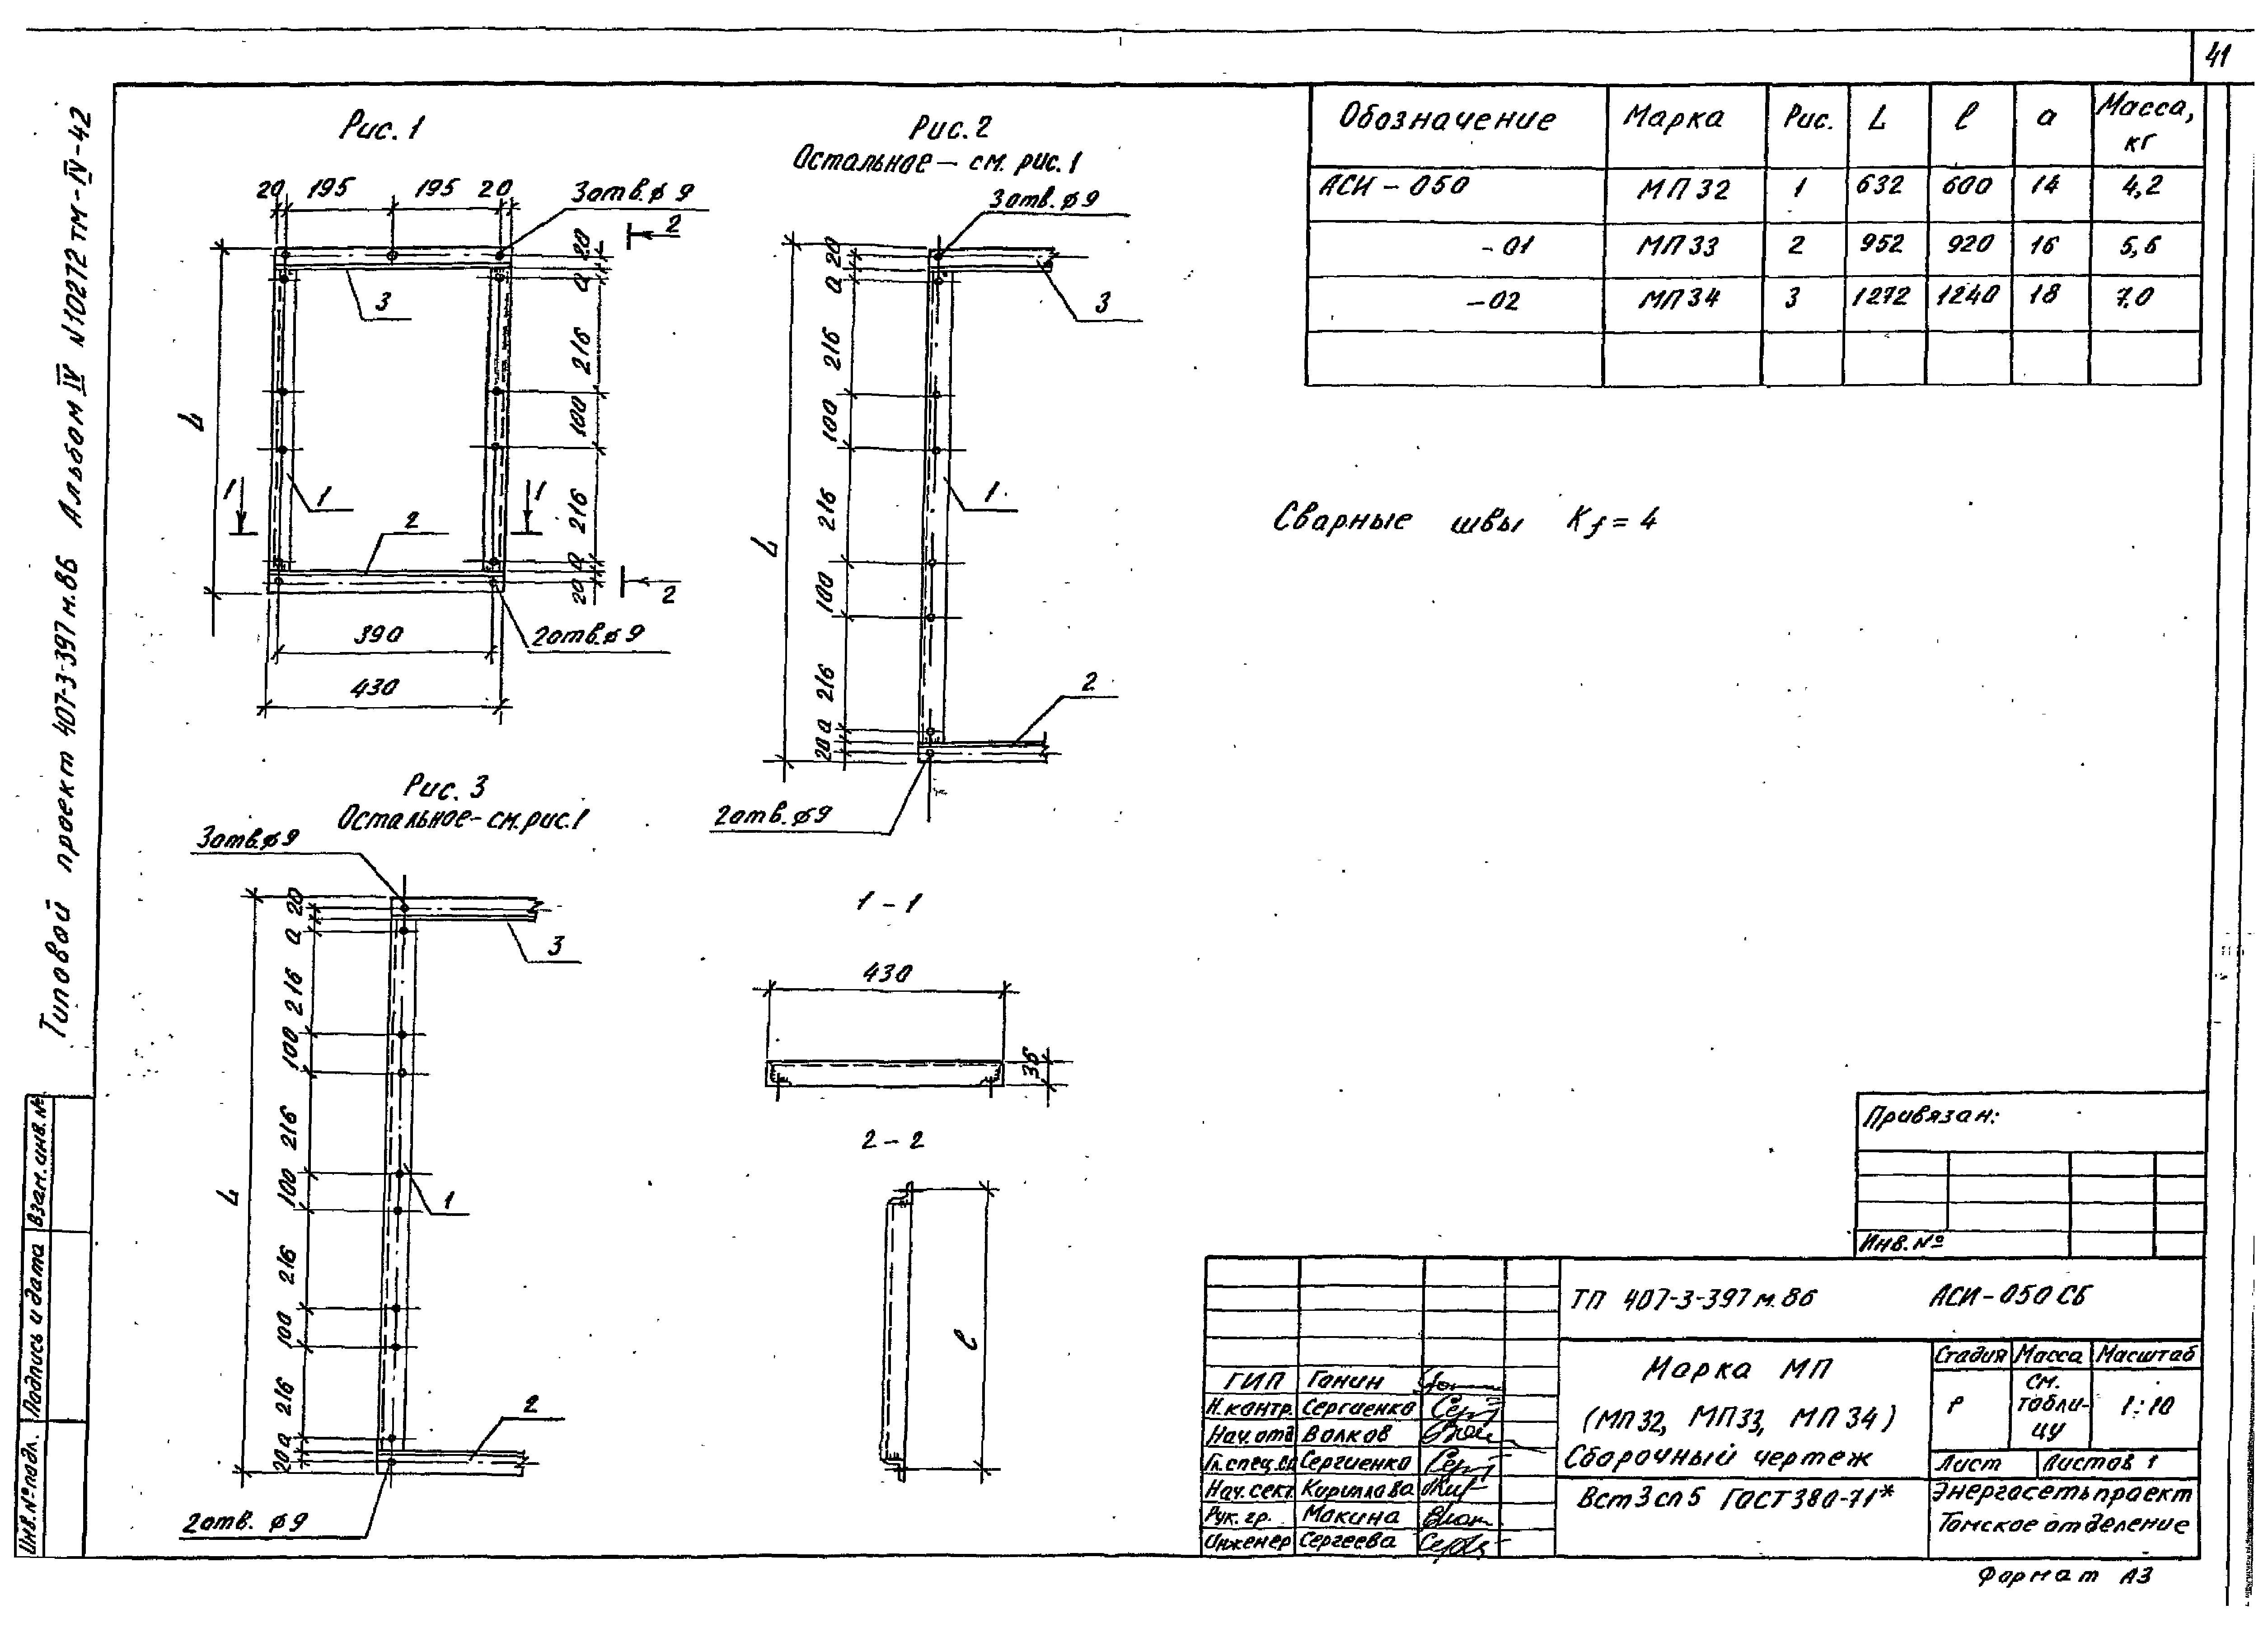 41
Типовой проект 407-3-397м.86 Альбом IV N10272тм-IV-42
Рис. 1
20 195 195 20
3отв.ø9
2
20
a
3
216
100
L
1
1
1
2
216
a
20
2
390
2отв.ø9
430
Рис. 2
Остальное - см. рис. 1
3отв.ø9
20
a
3
216
100
216
L
1
100
216
2
a
20
2отв.ø9
Рис. 3
Остальное - см. рис. 1
3отв.ø9
20
a
3
216
100
216
L
100
1
216
100
216
2
a
20
2отв. ø9
1 - 1
430
36
2 - 2
l
Обозначение Марка Рис. L l a Масса, кг
АСИ - 050 МП 32 1 632 600 14 4,2
-01 МП 33 2 952 920 16 5,6
-02 МП 34 3 1272 1240 18 7,0
Сварные швы Kf = 4
Привязан:
Инв. №
ТП 407-3-397м.86 АСИ-050 СБ
Марка МП
(МП32, МП33, МП34)
Сборочный чертеж
Стадия Масса Масштаб
Р см. таблицу 1:10
Лист Листов 1
ВСт3сп5 ГОСТ380-71*
Энергосетьпроект
Томское отделение
ГИП Ганин
Н.контр. Сергиенко
Нач.отд Волков
Гл.спец.СО Сергиенко
Нач.сект. Кириллова
Рук.гр. Мокина
Инженер Сергеева
Формат А3
Взам.инв.№
Подпись и дата
Инв.№подл.